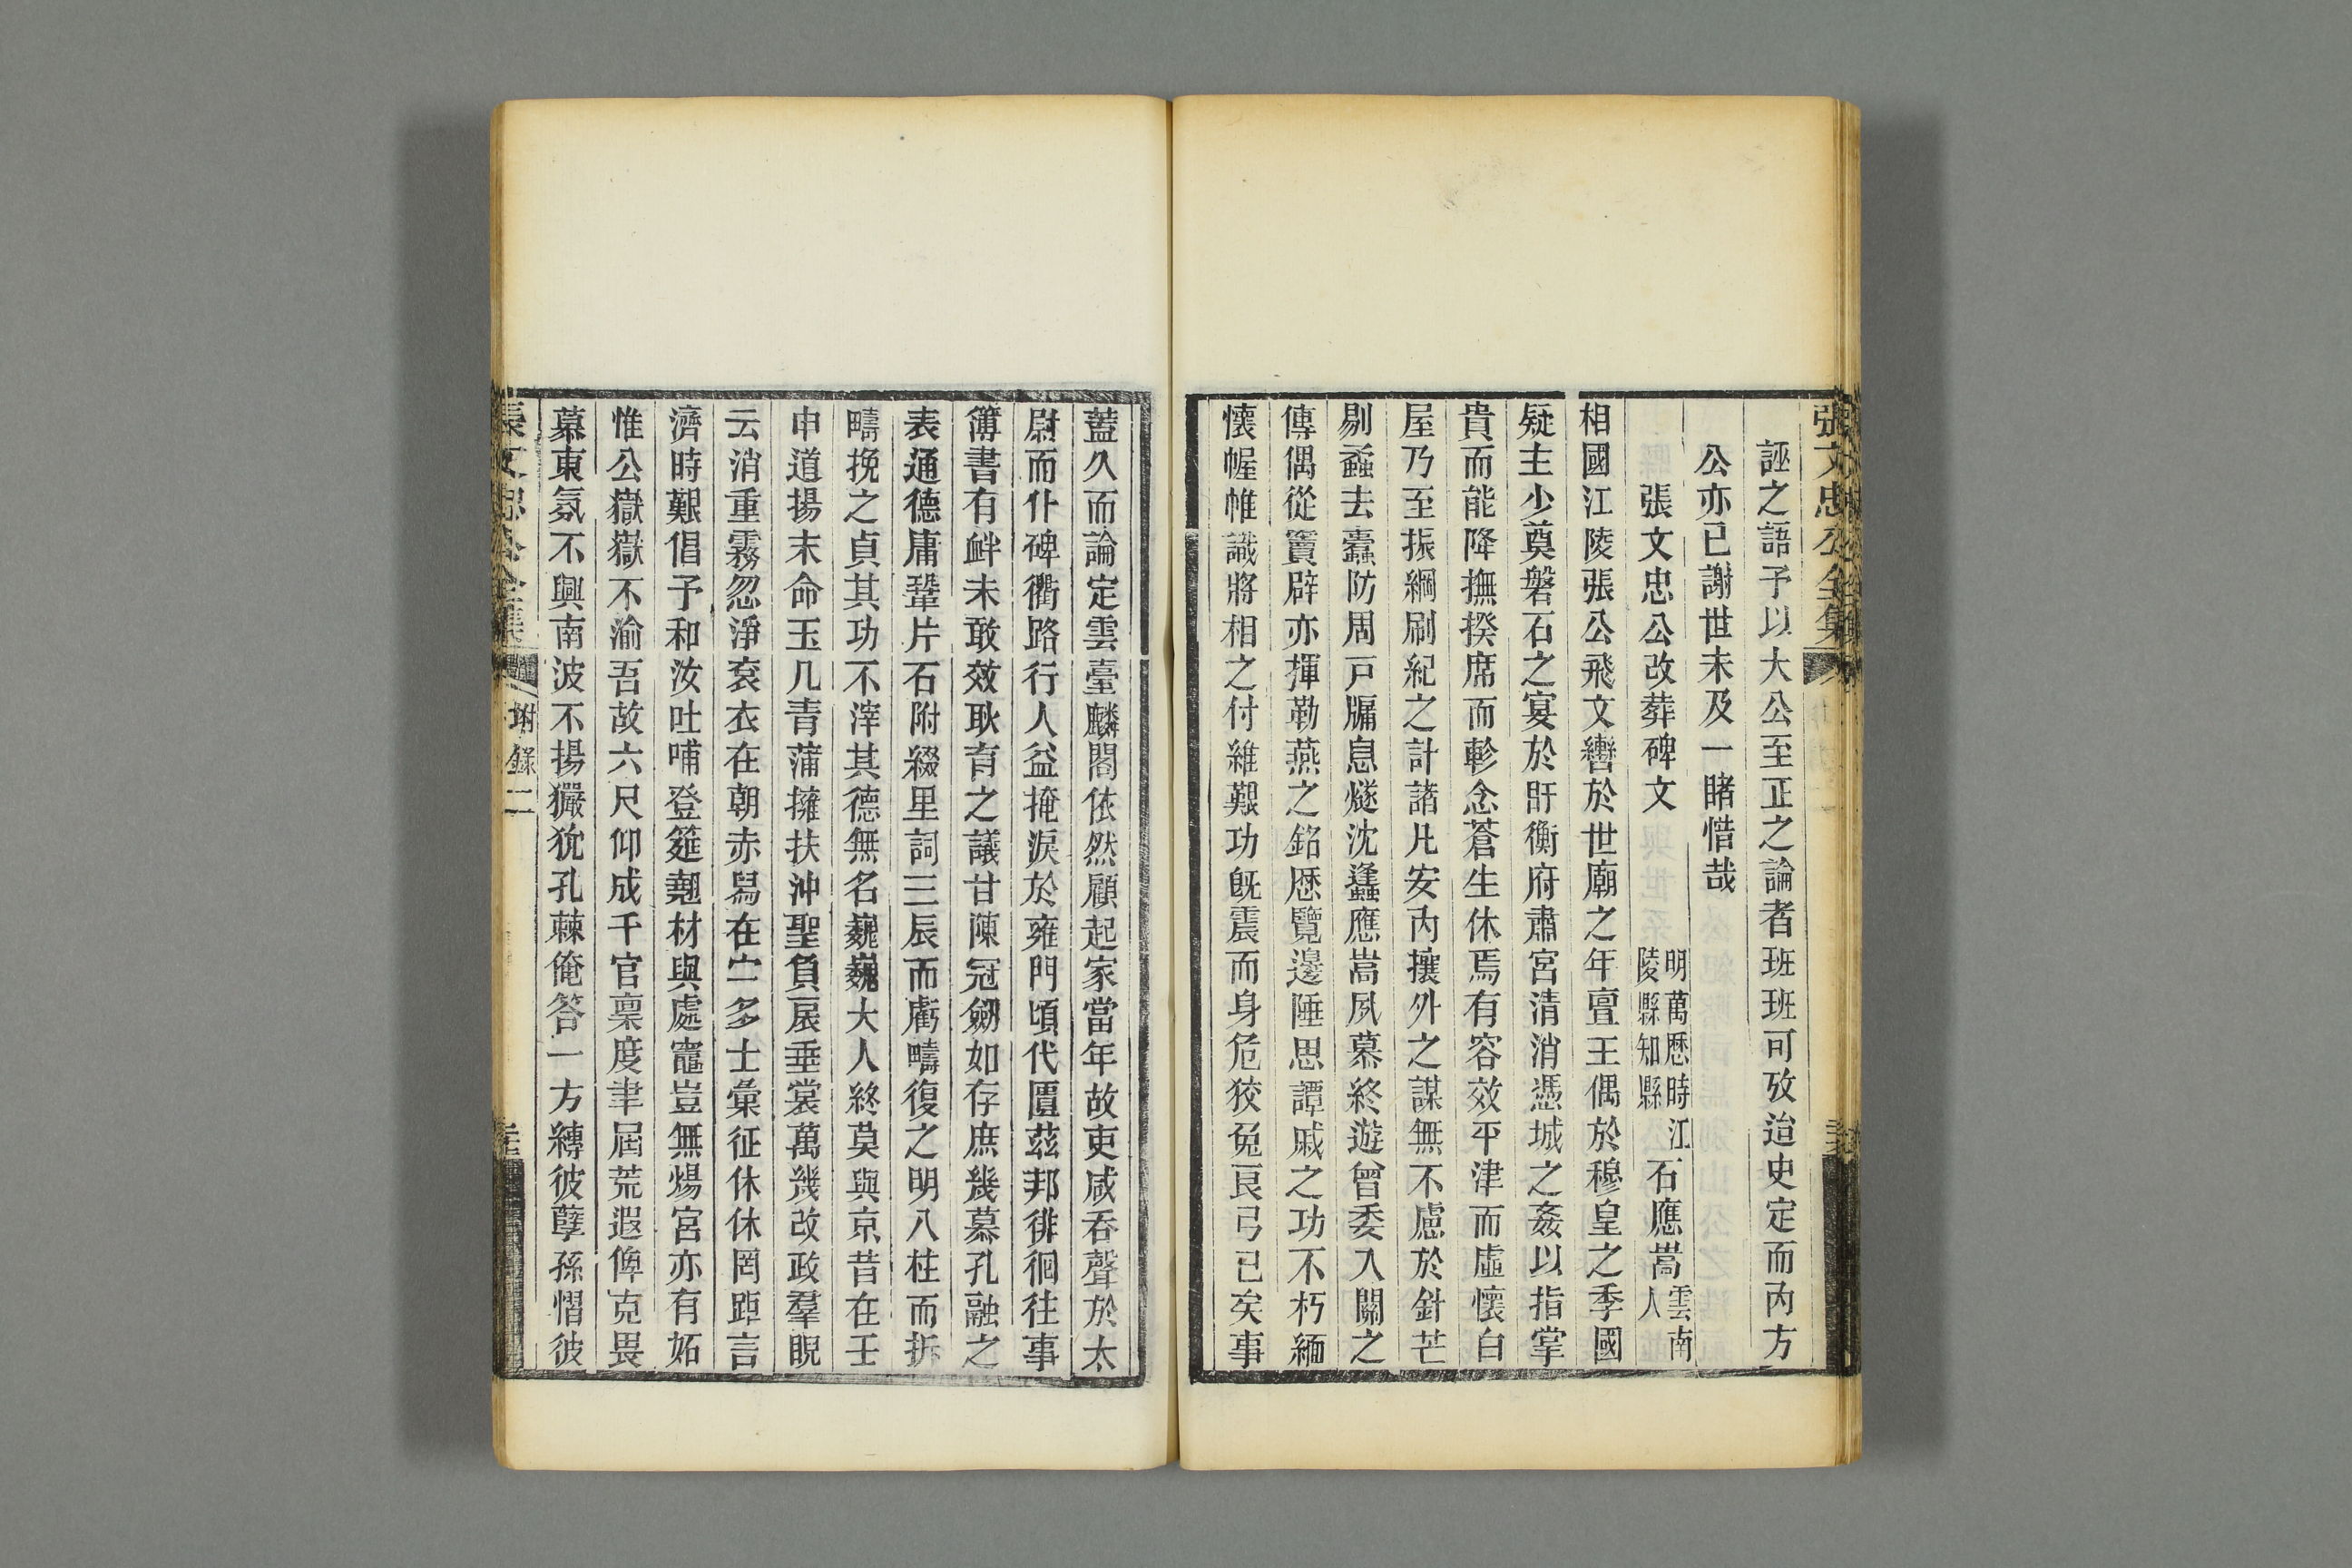 張文忠公全集
誣之語予以大公至正之論者班班可攷迨史定而內方
公亦已謝世未及一睹惜哉
張文忠公改葬碑文 明萬歷時江陵縣知縣 石應嵩 雲南人
相國江陵張公飛文轡於世廟之年亶王偶於穆皇之季國
疑主少奠磐石之宴於盱衡府肅宮清消憑城之姦以指掌
貴而能降撫揆席而軫念蒼生休焉有容效平津而虛懷白
屋乃至振綱刷紀之計諸凡安內攘外之謀無不慮於針芒
剔蝨去蠹防周戸牖息燧沈逢應嵩夙慕終遊曾委入關之
傳偶從竇辟亦揮勒燕之銘歷覽邊陲思譚戚之功不朽緬
懷幄帷識將相之付維艱功旣震而身危狡兔良弓已矣事
蓋久而論定雲臺麟閣依然顧起家當年故吏咸吞聲於太
尉而仆碑衢路行人益掩淚於雍門頃代匱茲邦徘徊往事
簿書有衅未敢效耿育之議甘陳冠劒如存庶幾慕孔融之
表通德庸鞏片石附綴里詞三辰而虧疇復之明八柱而拆
疇挽之貞其功不滓其德無名巍巍大人終莫與京昔在壬
申道揚末命玉几青蒲擁扶沖聖負扆垂裳萬幾改政羣睨
云消重霧忽淨袞衣在朝赤舄在宀多士彙征休休罔距言
濟時艱倡予和汝吐哺登筵翹材與處竈豈無煬宮亦有妬
惟公嶽嶽不渝吾故六尺仰成千官稟度聿屆荒遐俾克畏
慕東氛不興南波不揚玁狁孔棘俺答一方縛彼孽孫慴彼
張文忠公全集 附錄二